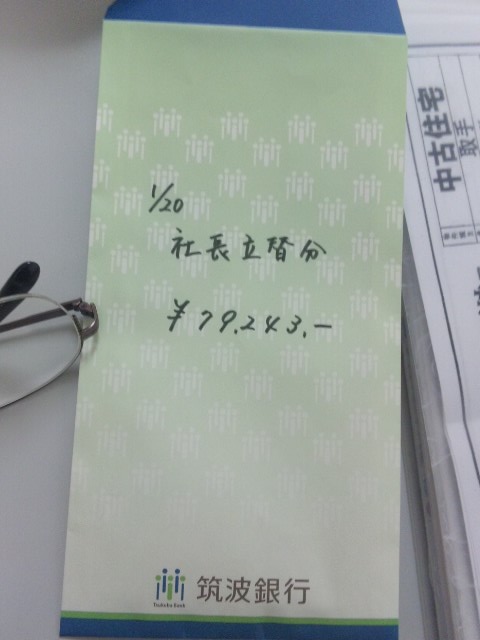 1/20
社長立替分
¥79,243.-
Tsukuba Bank
筑波銀行
中古住宅
取手